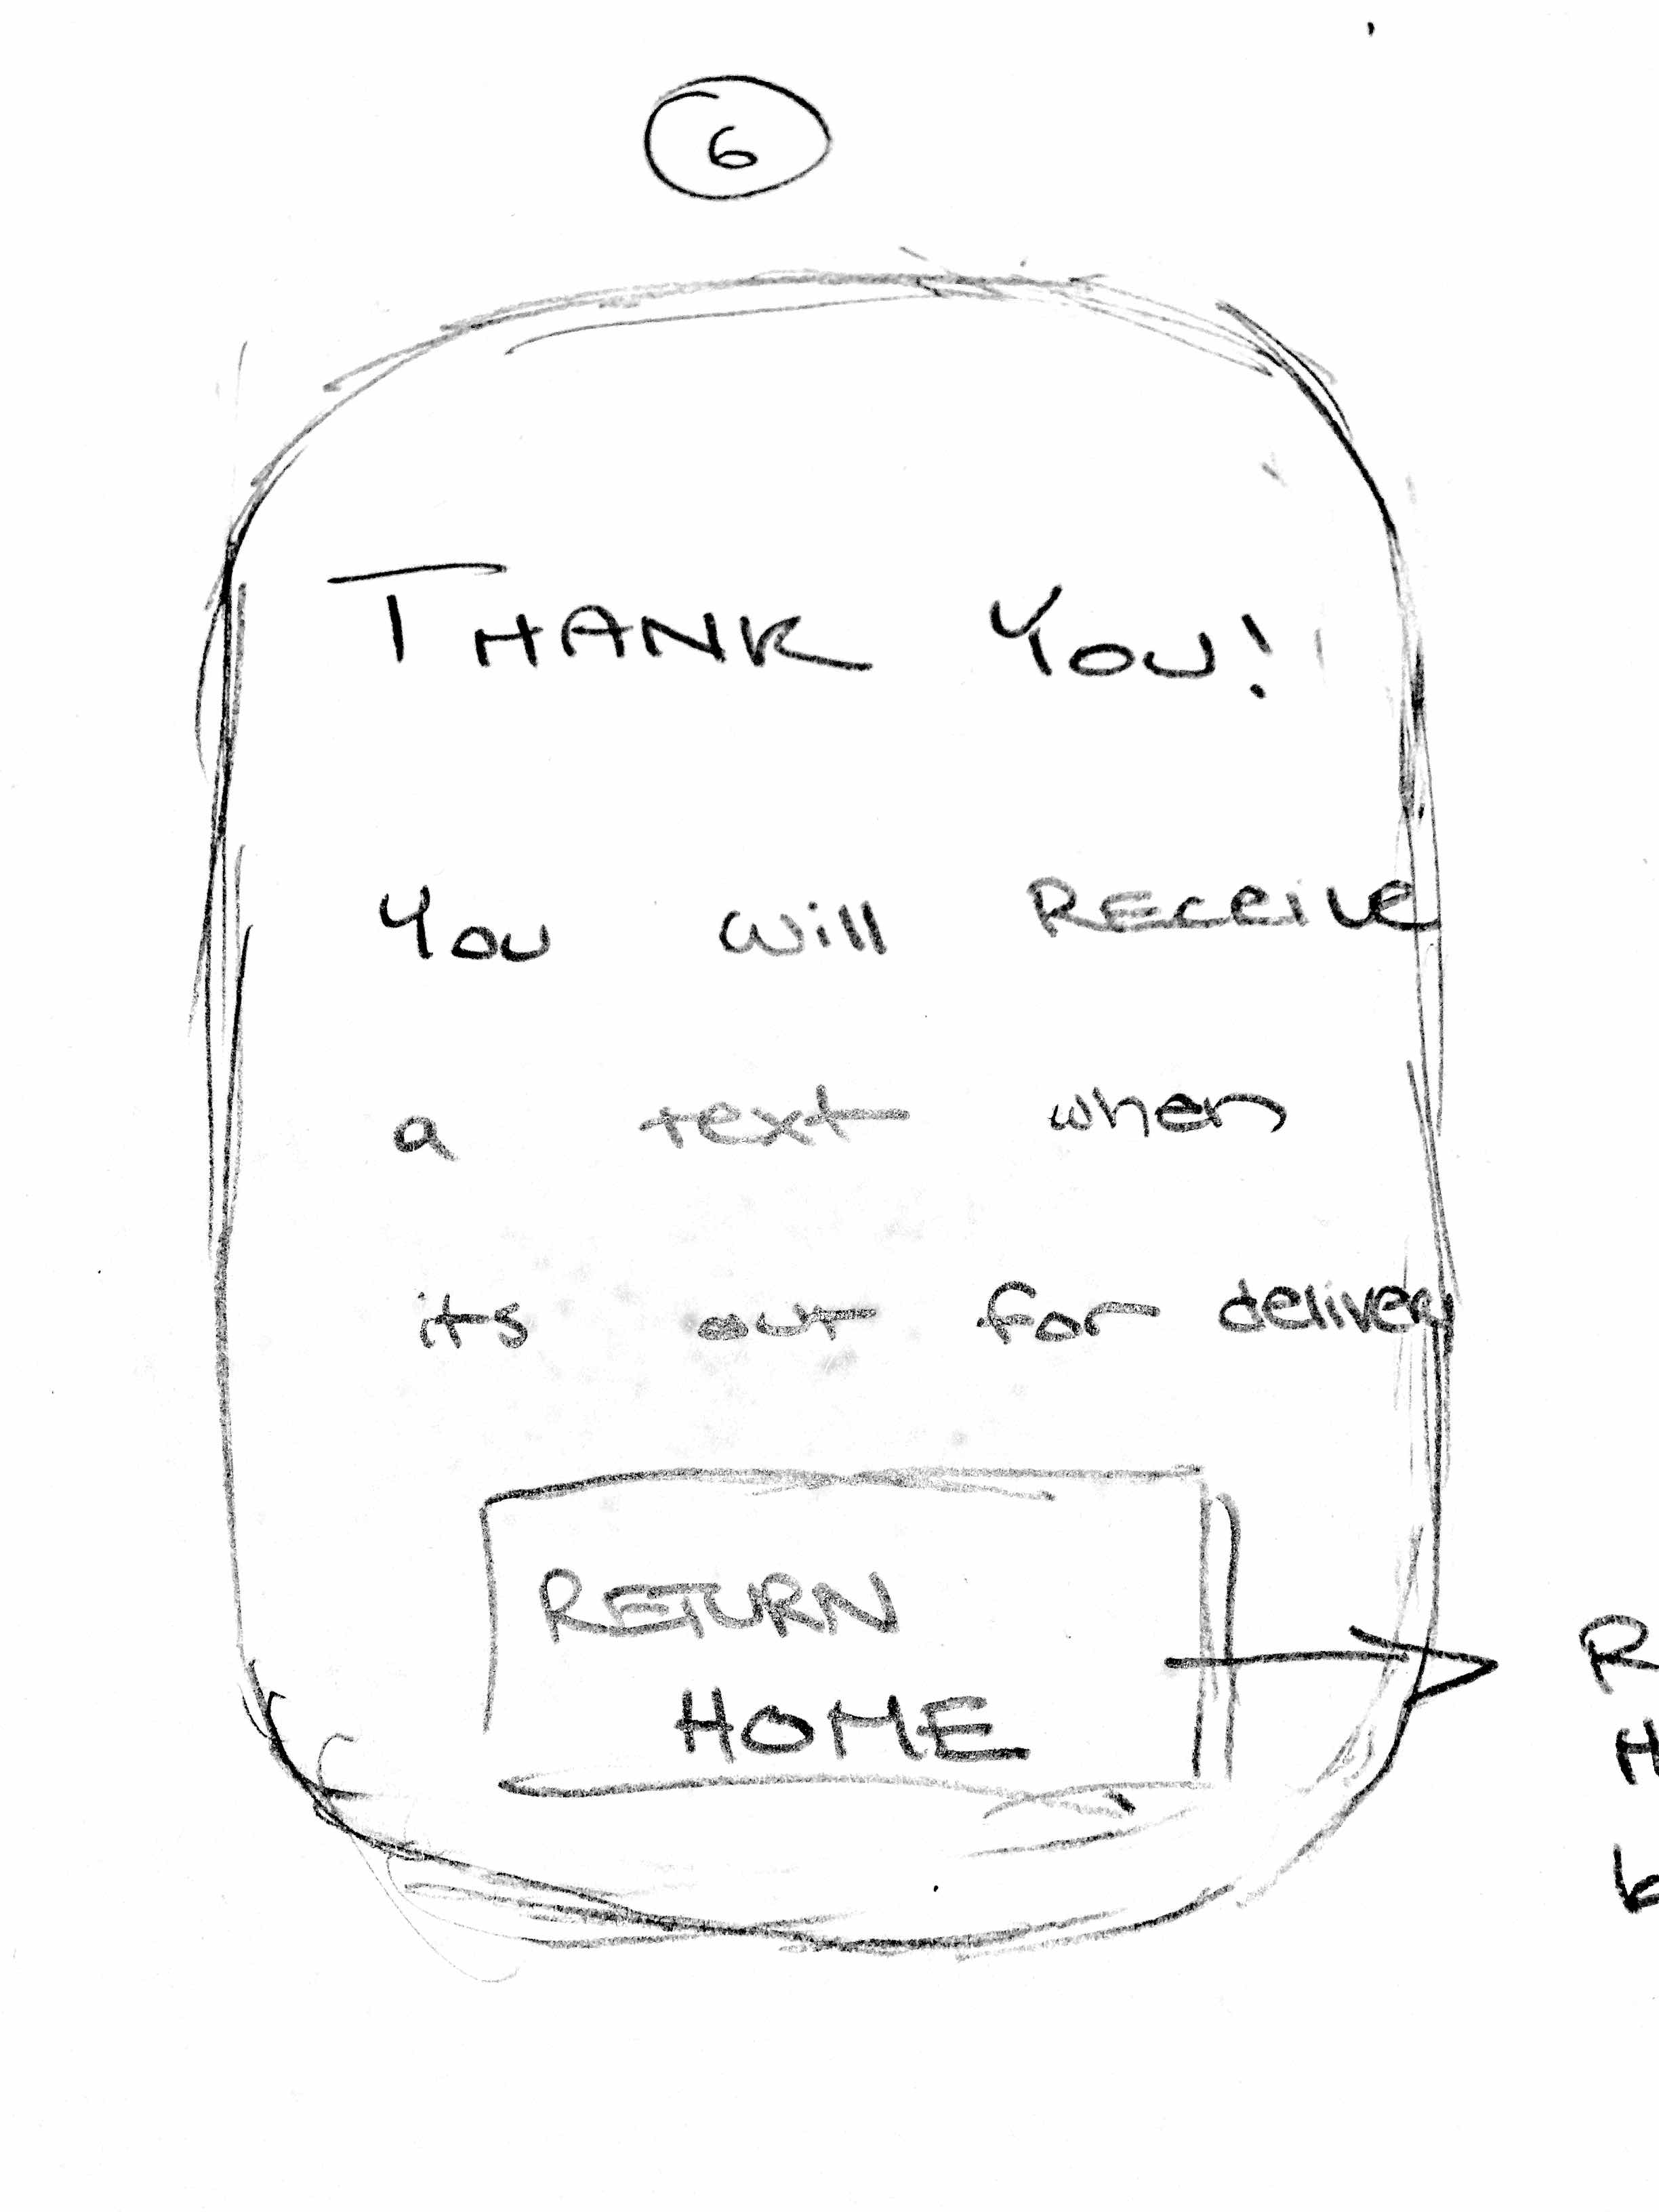 6
THANK YOU!
You will RECEIVE
a text when
its out for delivery
RETURN
HOME
R
H
b